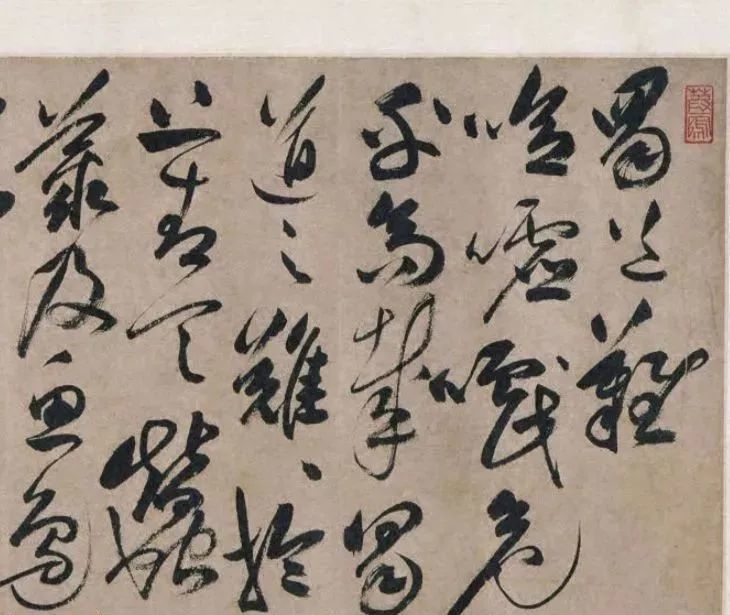 蜀道難
噫嘘嚱危
乎高哉蜀
道之難〻於
上青天蠶
叢及魚鳧